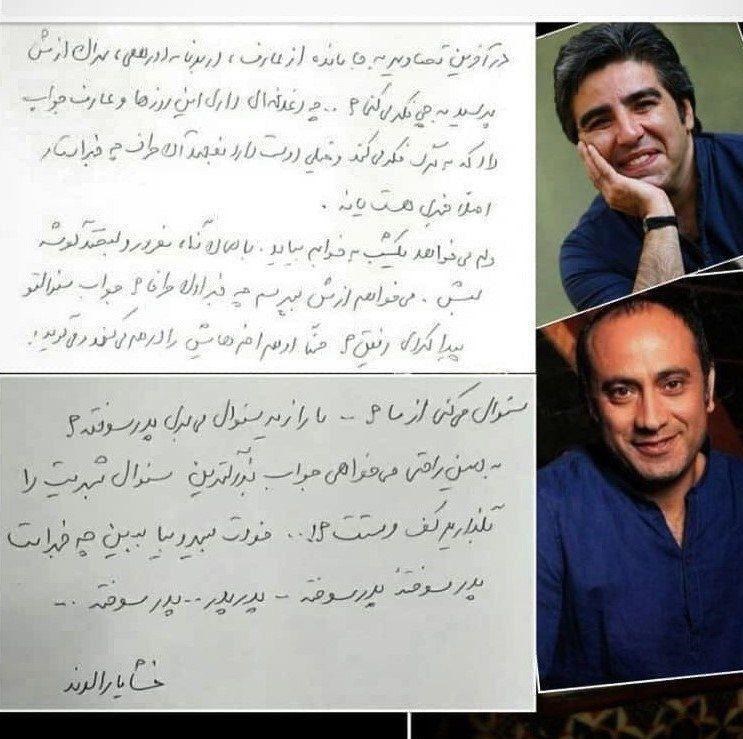 در آخرین تصاویر به جا مانده از عارف، دوربین به دست، سوال ازش
پرسید به چی فکر می‌کنی؟ .. چه دغدغه‌ای داری این روزها و عارف جواب
داد که به مرگ فکر می‌کند و خیلی دوست دارد بفهمد آن طرف چه خبر است
اصلا خبری هست یا نه .
دلم می‌خواهد یکشب به خوابم بیاید . با همان نگاه مغرور و لبخند گوشه
لبش . می‌خواهم ازش بپرسم چه خبر اون طرفا؟ جواب سئوالتو
پیدا کردی رفیق؟ حتّا او هم اخم‌هایش را در هم می‌کند و می‌گوید :
سئوال می‌کنی از ما؟ .. ما را زیر سئوال می‌بری پدر سوخته؟
به همین راحتی می‌خواهی جواب بزرگترین سئوال بشریت را
بگذاریم کف دستت؟! .. خودت بمیر و بیا ببین چه خبر است
پدر سوختهٔ پدر سوخته - پدر پدر .. پدر سوخته ..
خشایار الوند